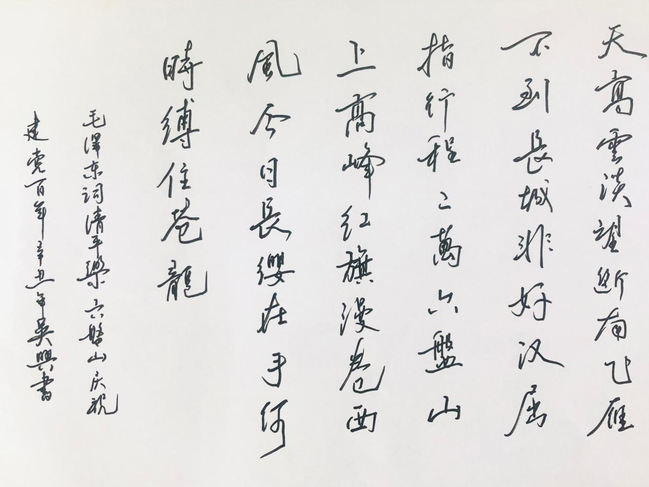 天高雲淡望断南飞雁
不到長城非好汉屈
指行程二萬六盤山
上高峰红旗漫卷西
風今日長缨在手何
時缚住苍龍
毛泽东词清平樂六盤山庆祝
建党百年辛丑年吴興書